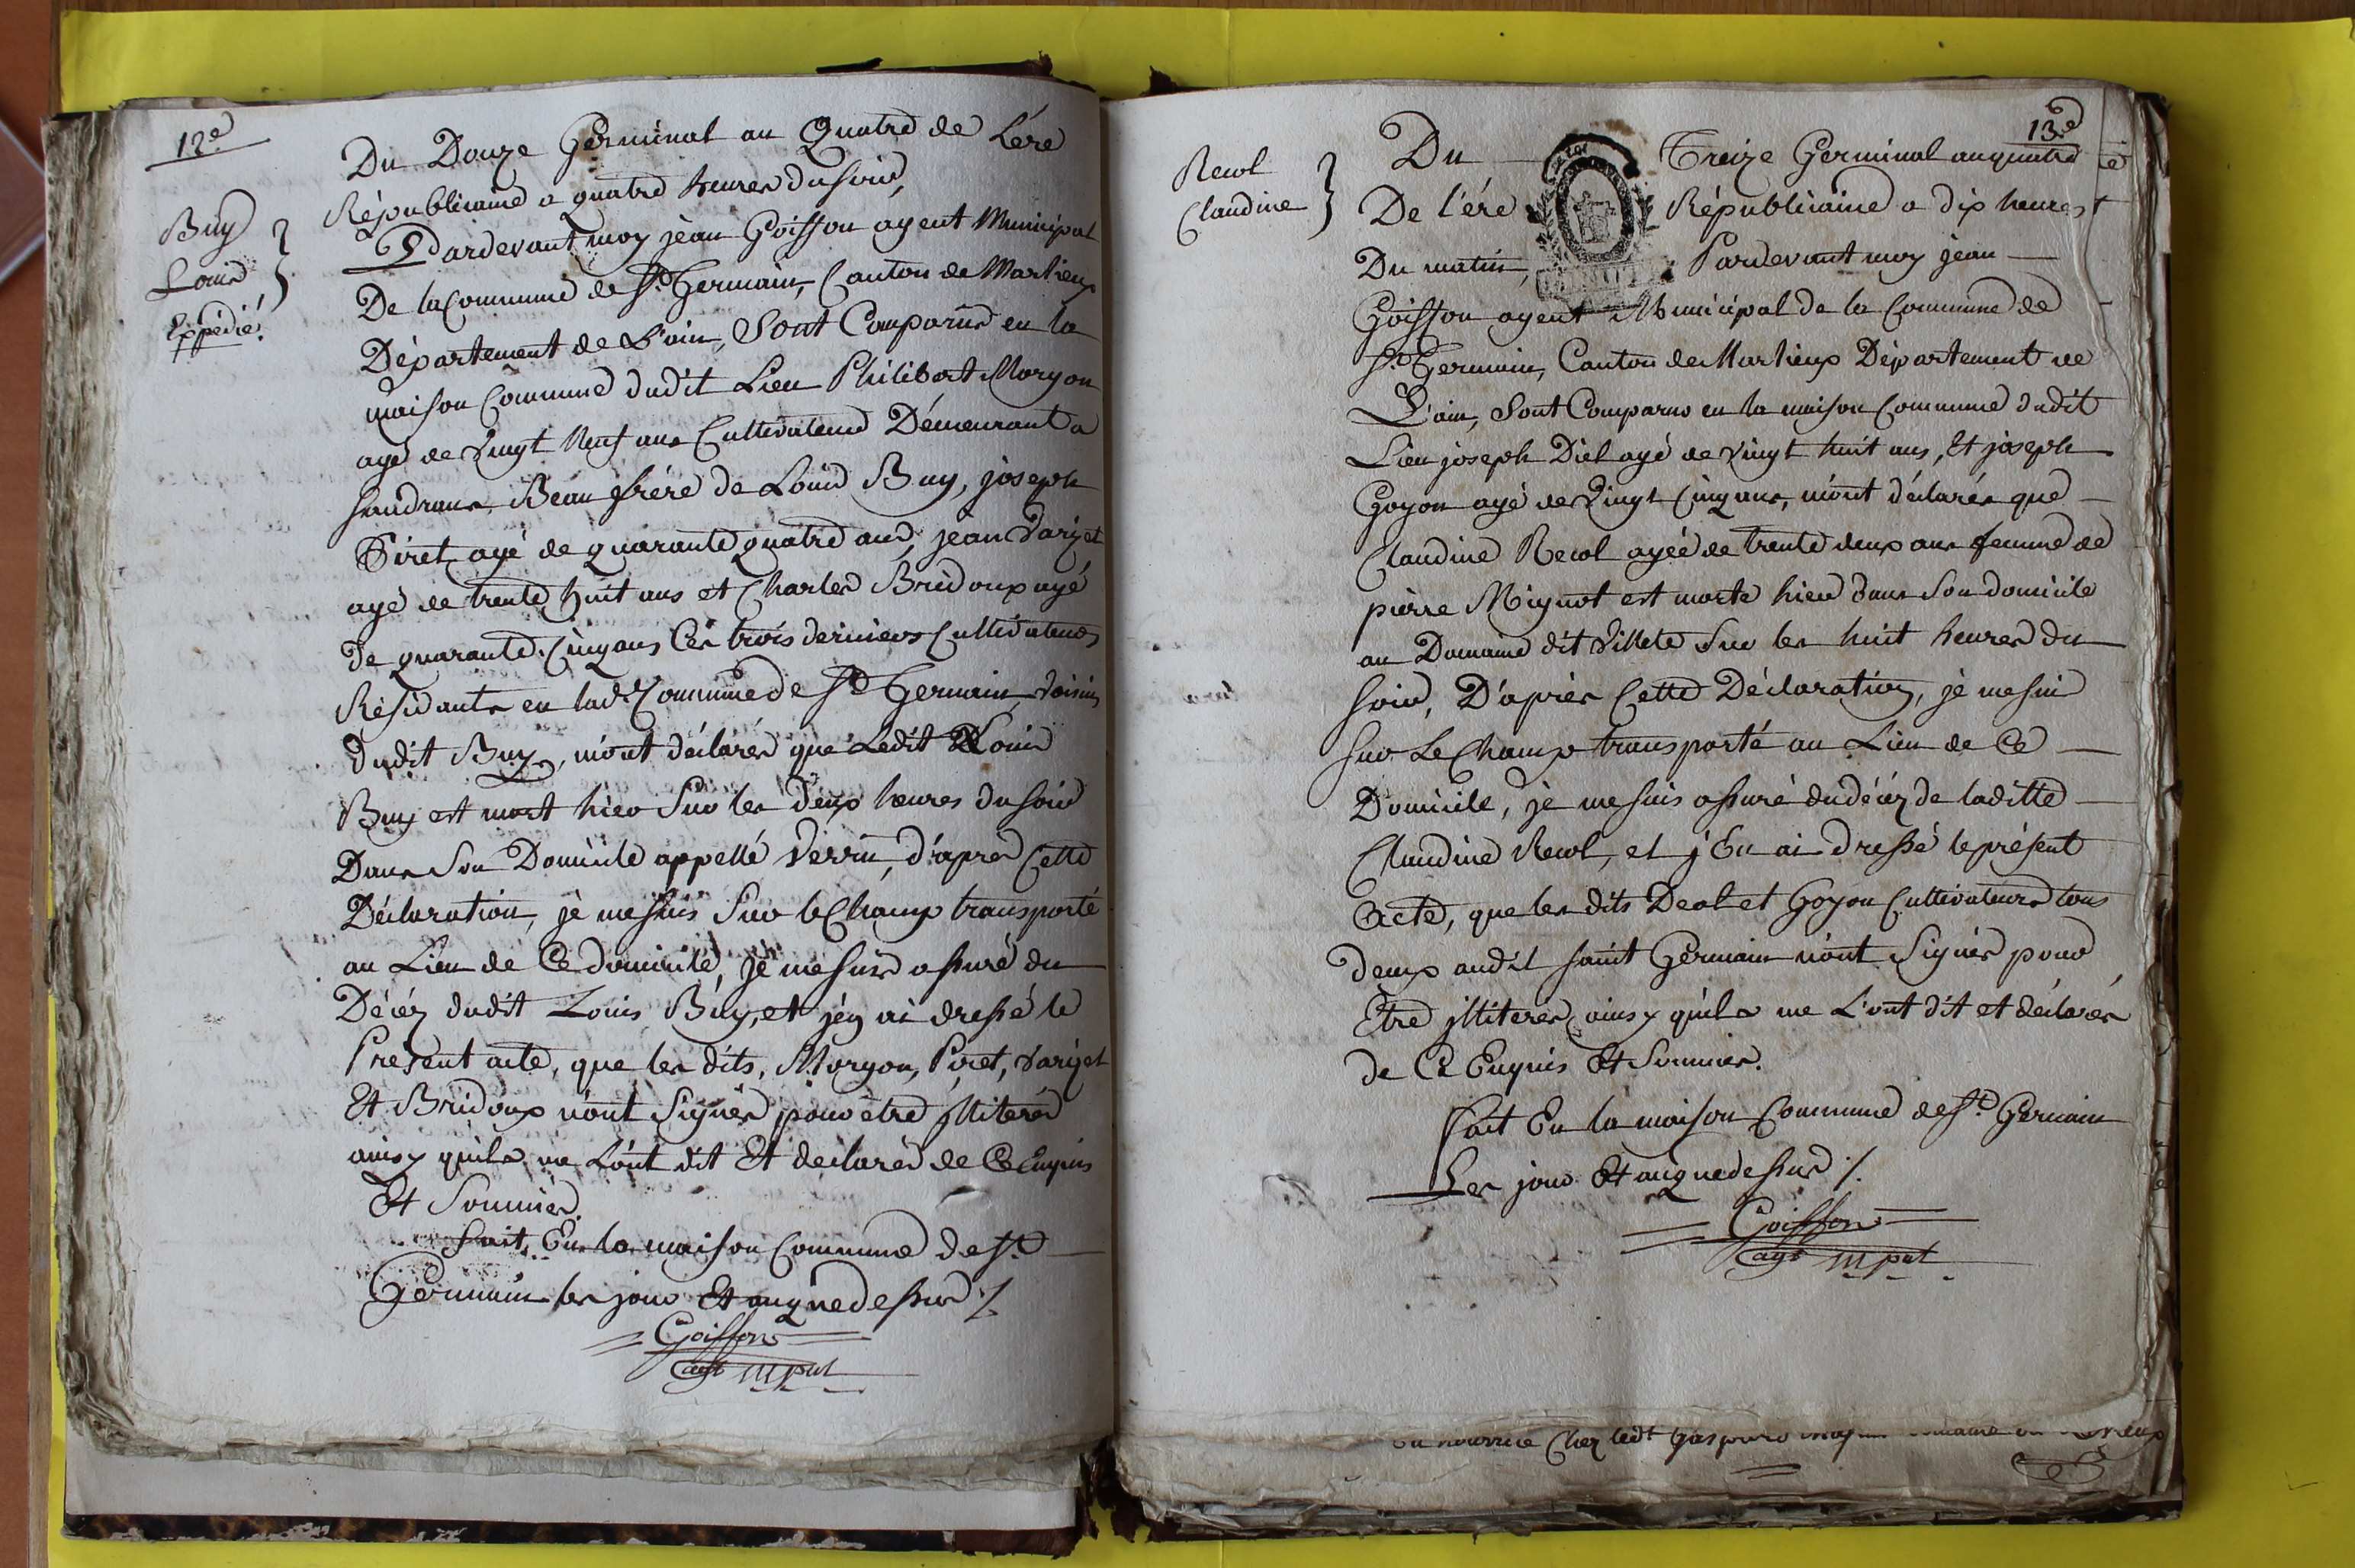 12e
Buy
Louis
Expédié.
Du Douze Germinal an Quatre de L'ére
Républicaine a quatre heures du soir,
Pardevant moy jean Goiffon agent Municipal
De la Commune de St. Germain, Canton de Marlieux
Département de L'ain, Sont Comparus en la
maison Commune dudit Lieu Philibert Morgon
agé de Vingt Neuf ans Cultivateur Démeurant a
Sandrans Beau frére de Louis Buy, joseph
Piret agé de quarante quatre ans, jean Variet
agé de trente huit ans et Charles Bridoux agé
de quarante Cinq ans Ces trois derniers Cultivateurs
Résidants en lade. Commune de St. Germain, Voisins
dudit Buy, m'ont déclarés que Ledit Louis
Buy est mort hier Sur les deux heures du soir
Dans Son Domicile appellé Verru, d'apres Cette
Déclaration, je me suis Sur le Champ transporté
au Lieu de Ce domicile, je me suis assuré du
Décéz dudit Louis Buy, et j'en ai dressé le
Présent acte, que les dits, Morgon, Piret, Variet
Et Bridoux n'ont Signés pour être illiterés
ainsy quils me L'ont dit Et déclarés de Ce Enquis
Et Sommés.
Fait En la maison Commune de St.
Germain les jour Et an que dessus ./.
Goiffon
agt mpal
13e
Revol
Claudine
Du Treize Germinal an quatre
De l'ére Républicaine a dix heures
Du matin, Pardevant moy jean
Goiffon agent Municipal de la Commune de
St. Germain, Canton de Marlieux Département de
L'ain, Sont Comparus en la maison Commune dudit
Lieu joseph Diel agé de Vingt huit ans, Et joseph
Goyon agé de Vingt Cinq ans, m'ont déclarés que
Claudine Revol agée de trente deux ans femme de
pierre Mignot est morte hier dans Son domicile
au Domaine dit Villete Sur les huit heures du
soir, D'aprés Cette Déclaration, je me suis
sur Le Champ transporté au Lieu de Ce
Domicile, je me suis assuré du décéz de laditte
Claudine Revol, et j'En ai dressé le présent
acte, que les dits Deal et Goyon Cultivateurs tous
deux audit saint Germain n'ont Signés pour
Etre illiterés ainsy quils me L'ont dit et déclarés
de Ce Enquis Et Sommés.
Fait En la maison Commune de St. Germain
Les jour Et an que dessus ./.
Goiffon
agt mpal
en nourrice Chez ledt Gaspard